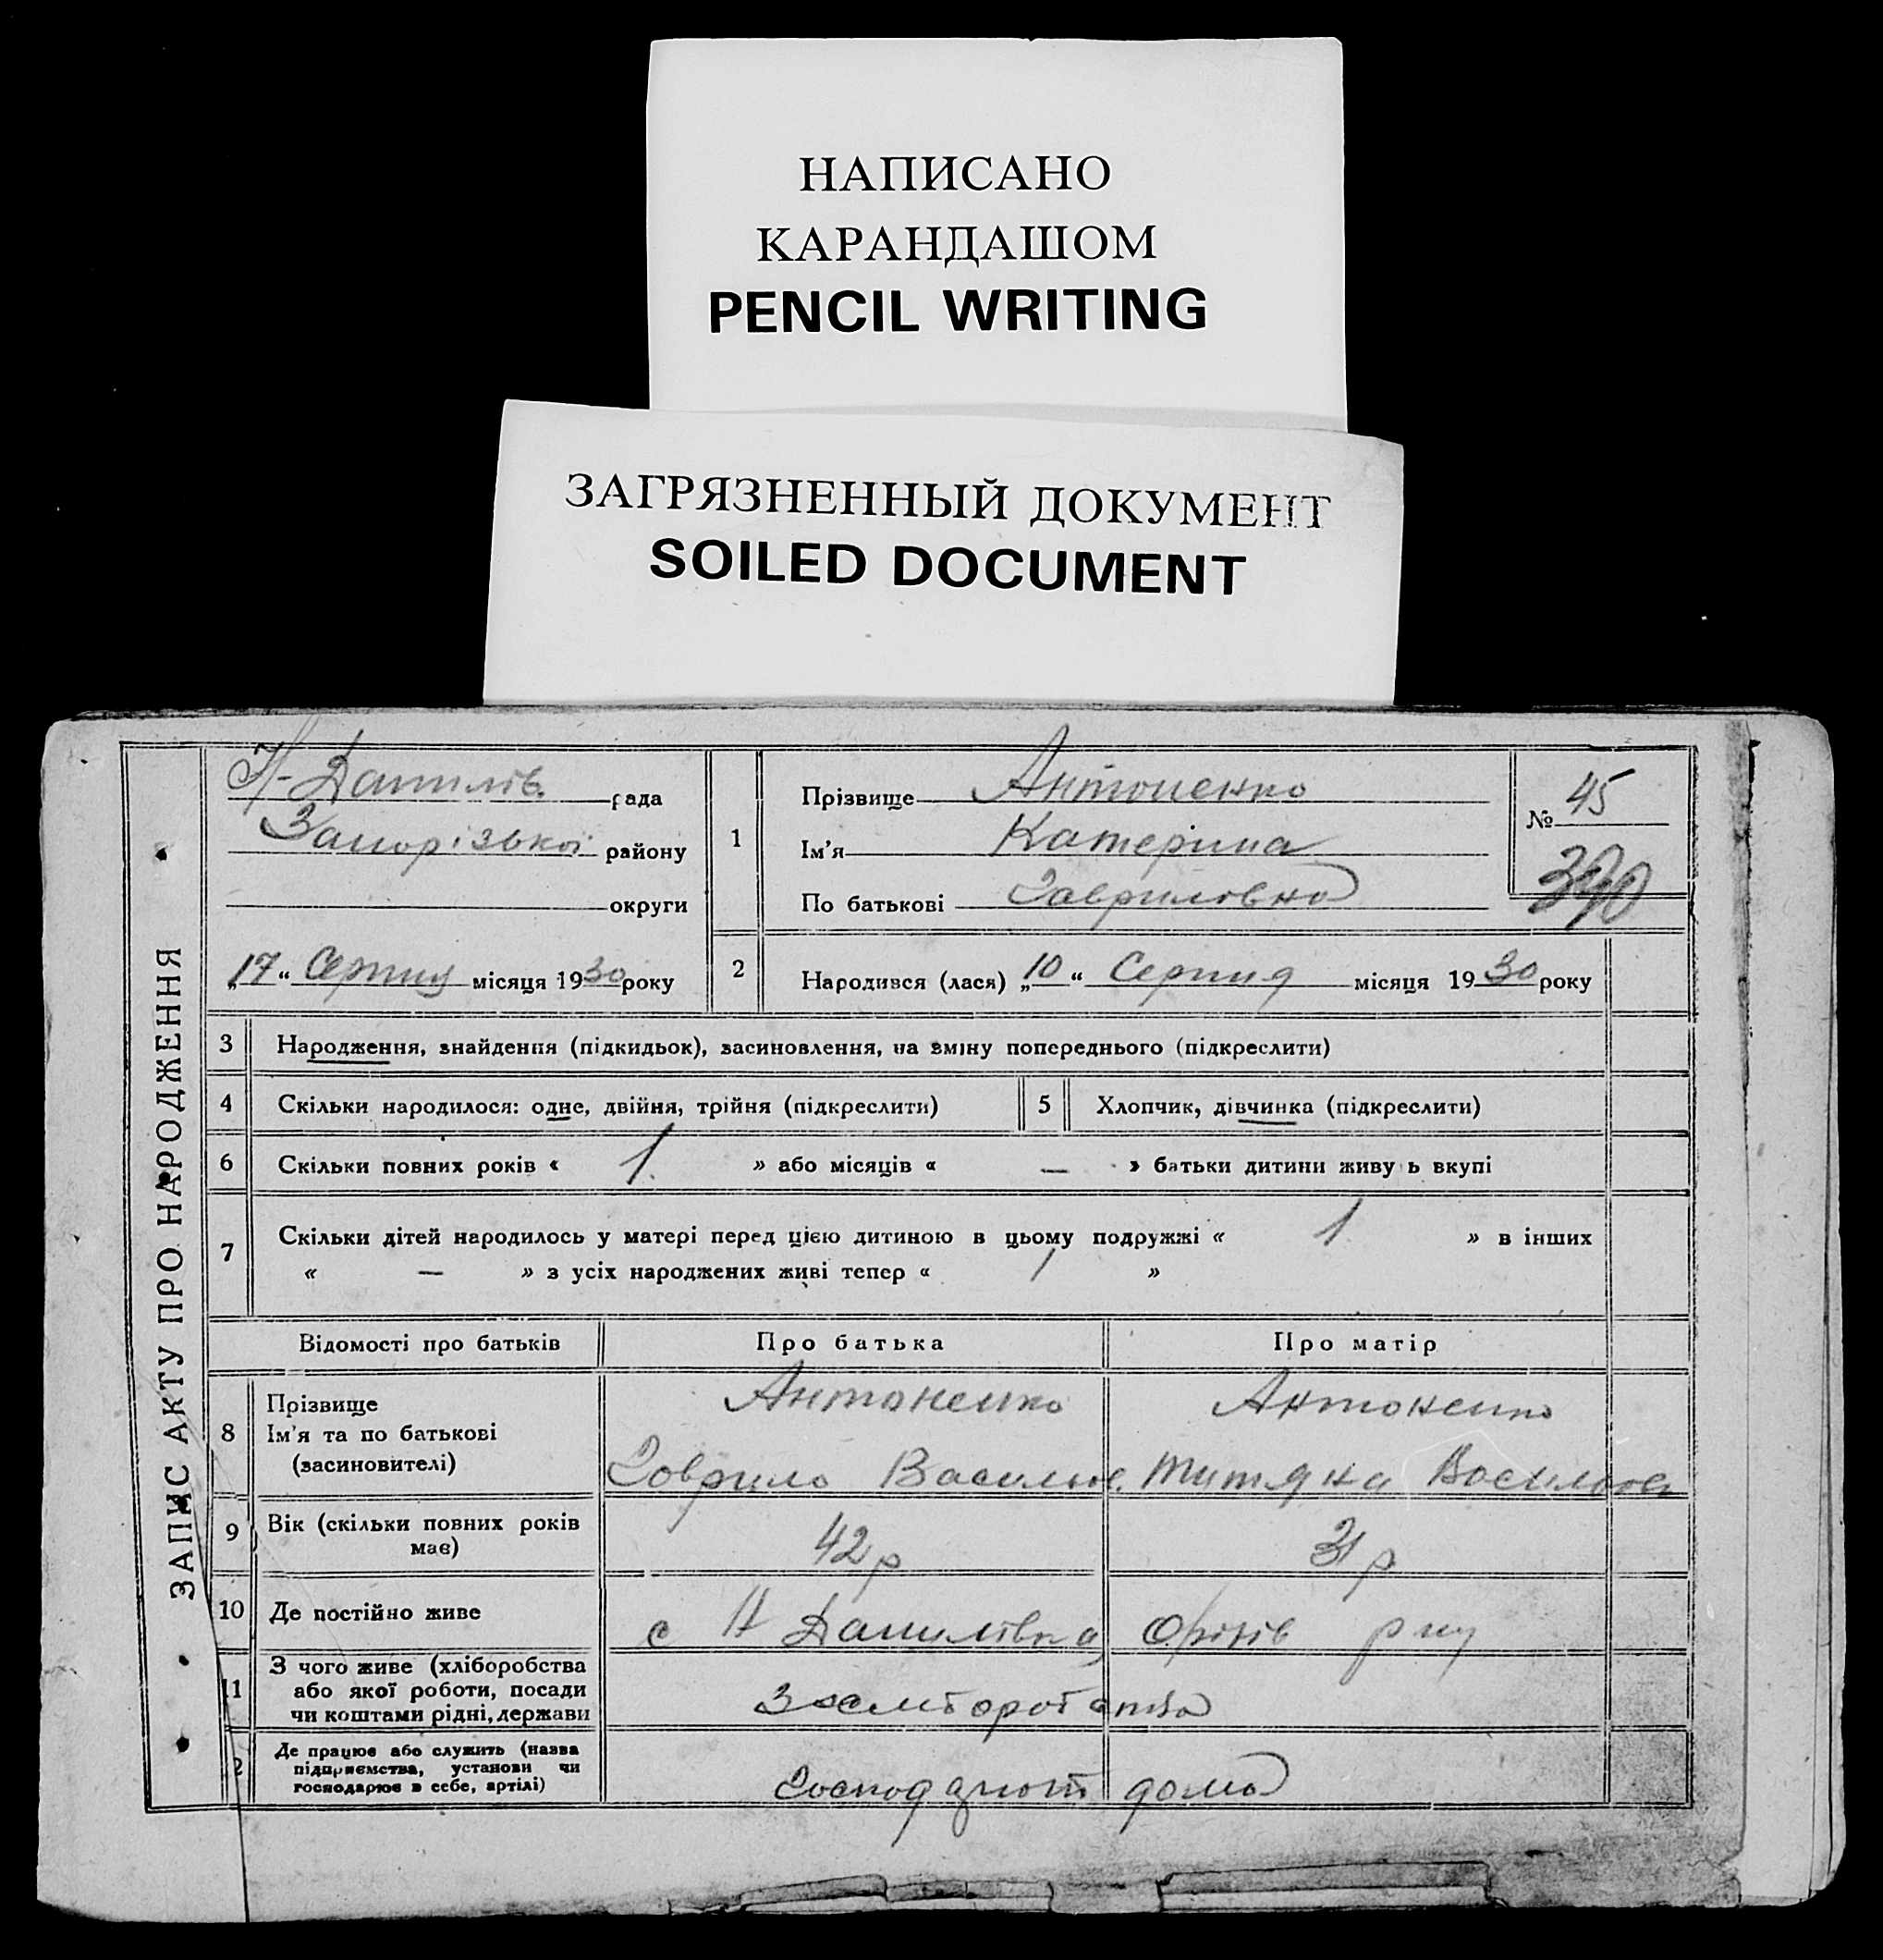 НАПИСАНО
КАРАНДАШОМ
PENCIL WRITING
ЗАГРЯЗНЕННЫЙ ДОКУМЕНТ
SOILED DOCUMENT
ЗАПИС АКТУ ПРО НАРОДЖЕННЯ
Н-Данилів. рада
Запорізької району
округи
„17“ Серпня місяця 1930 року
1
Прізвище Антоненко
Ім'я Катерина
По батькові Гавриловна
№ 45
390
2 Народився (лася) „10“ Серпня місяця 1930 року
3 Народження, знайдення (підкидьок), засиновлення, на зміну попереднього (підкреслити)
4 Скільки народилося: одне, двійня, трійня (підкреслити) 5 Хлопчик, дівчинка (підкреслити)
6 Скільки повних років « 1 » або місяців « — » батьки дитини живу ь вкупі
7 Скільки дітей народилось у матері перед цією дитиною в цьому подружжі « 1 » в інших
« — » з усіх народжених живі тепер « 1 »
Відомості про батьків Про батька Про матір
8 Прізвище
Ім'я та по батькові
(засиновителі)
Антоненко Антоненко
Говрило Васильов. Титяна
9 Вік (скільки повних років
має)
42 р 31 р
10 Де постійно живе с Н Данилівка Оріхів р ну
11 З чого живе (хліборобства
або якої роботи, посади
чи коштами рідні, держави
2 Де працює або служить (назва
підприємства, установи чи
господарює в себе, артілі)
дома